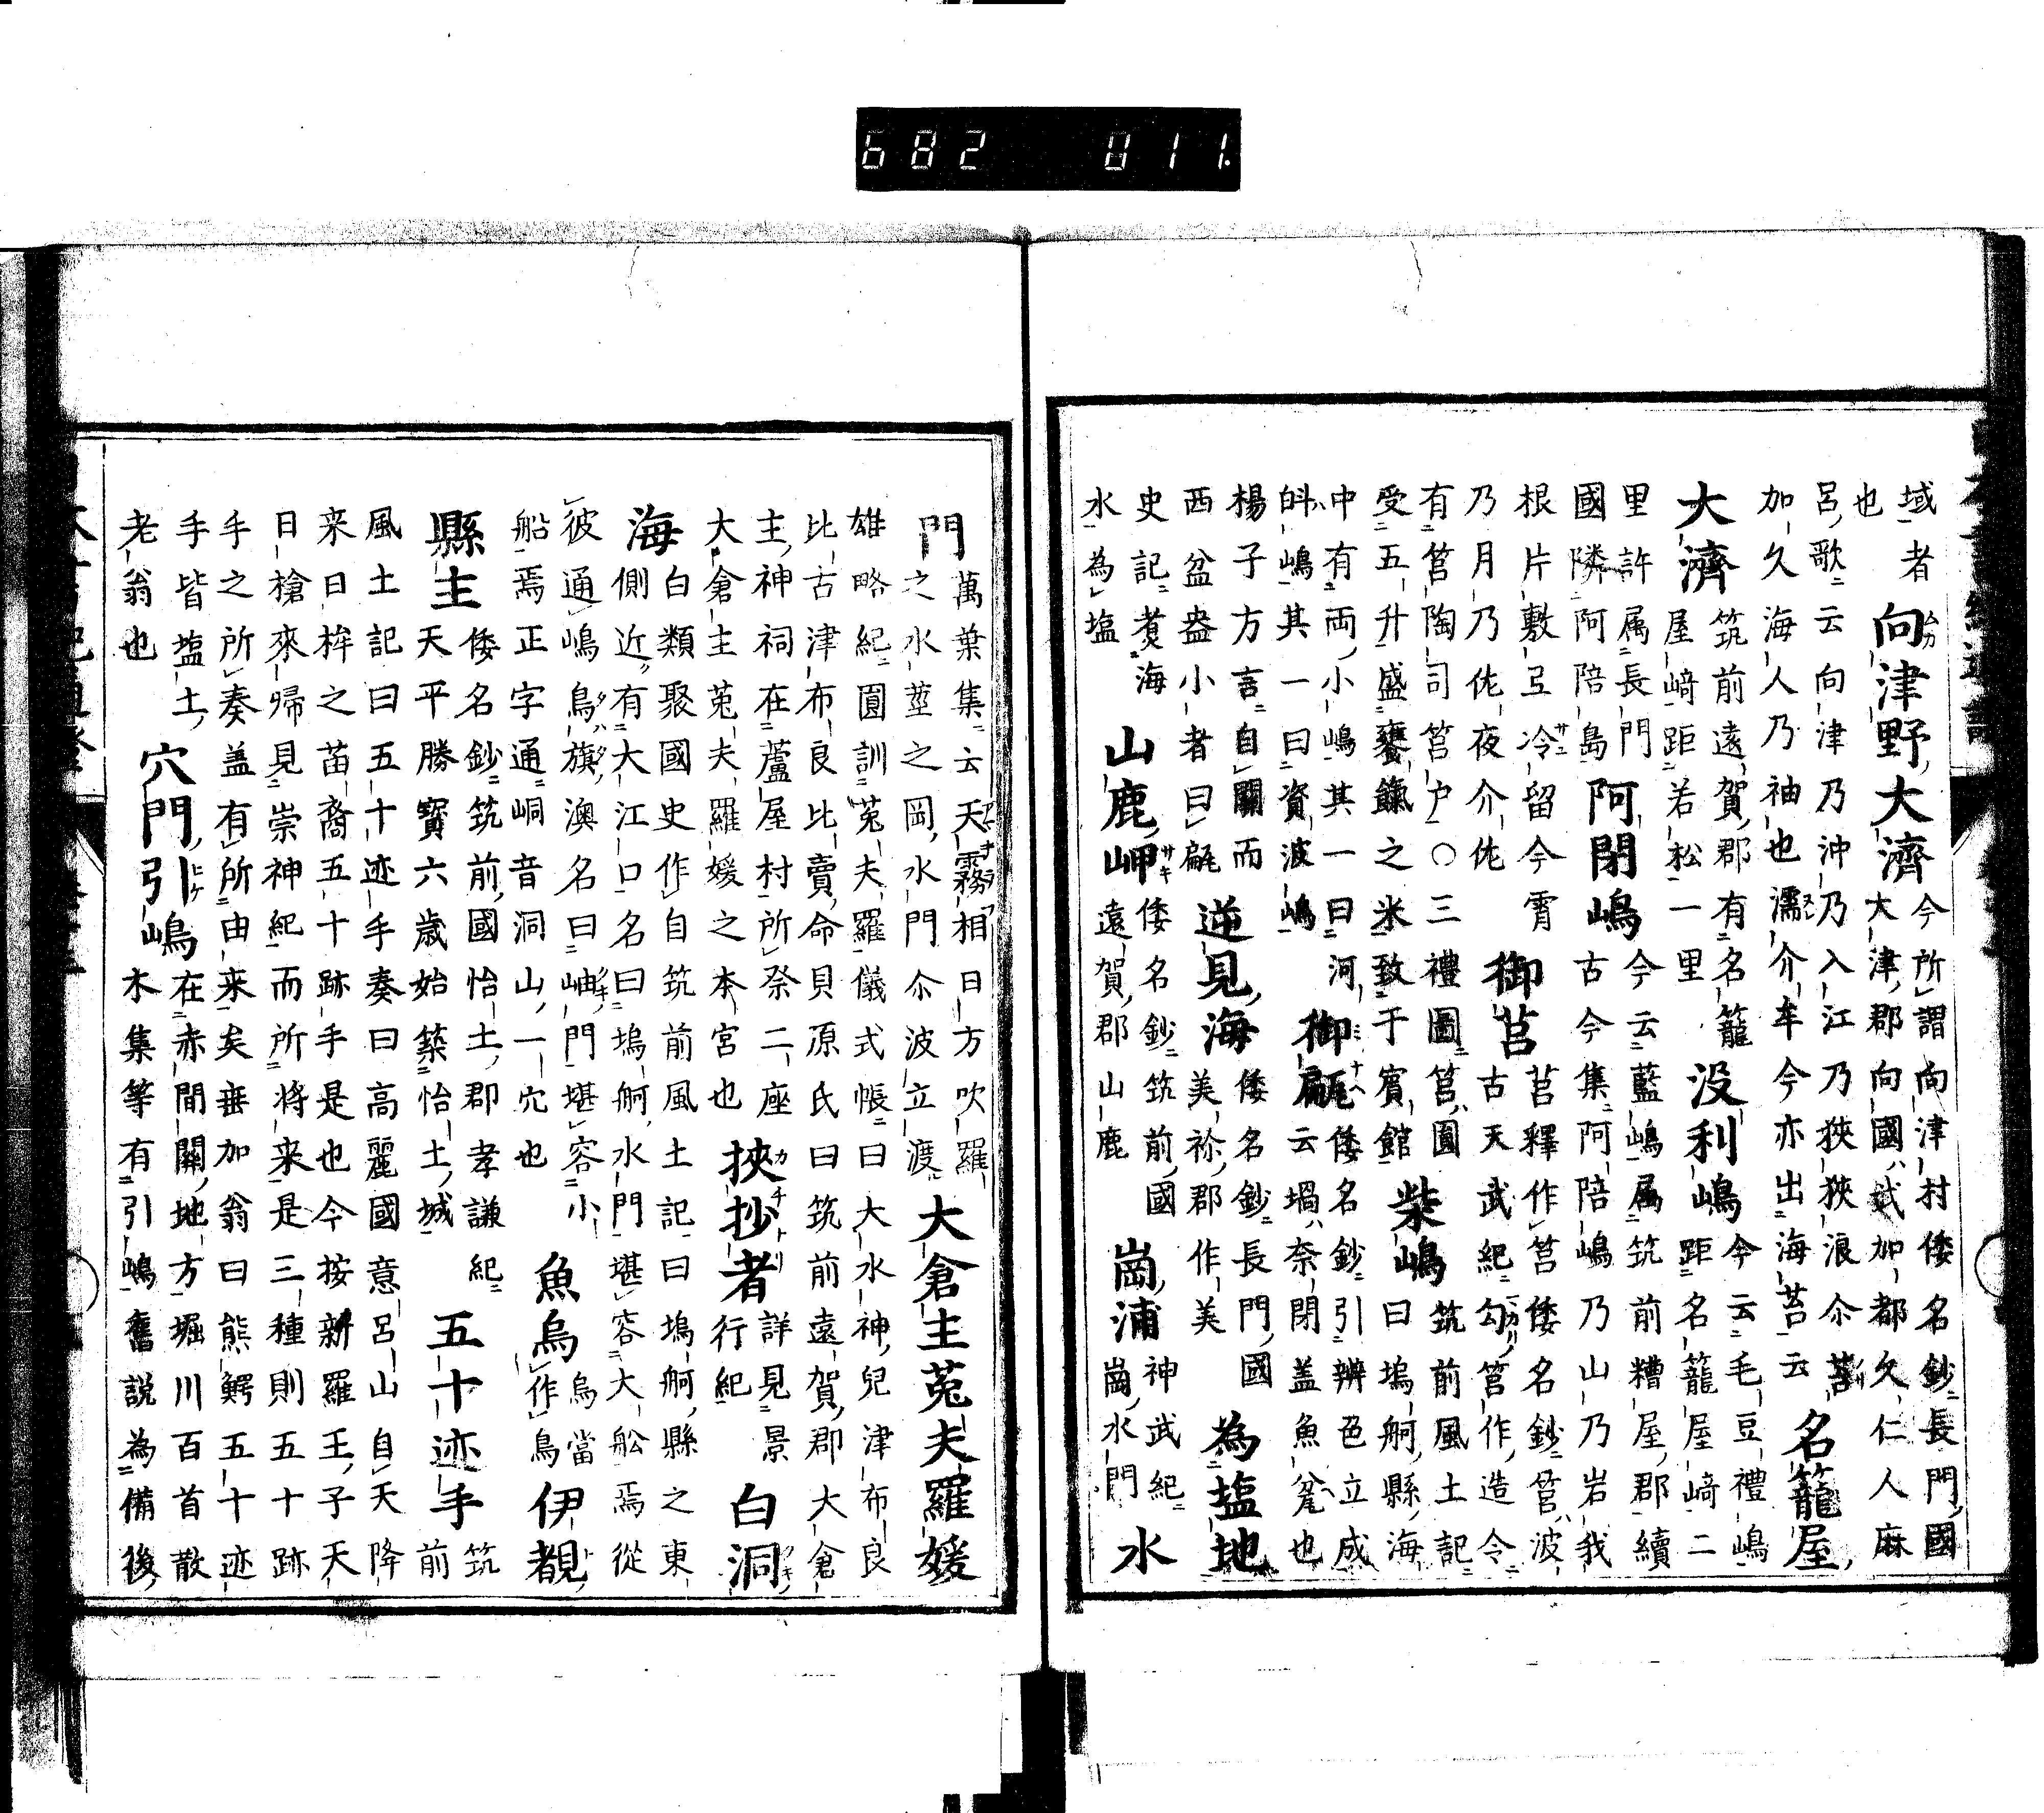 域者
也
向津野大濟
今所謂向津村倭名鈔長門國
大津郡向國武加都久仁人麻
呂歌云向津乃沖乃入江乃狹狹浪尒莟
加久海人乃袖也濡介牟今亦出海苔云
名籠屋
大濟
筑前遠賀郡有名籠
屋﨑距若松一里
没利嶋
今云毛豆禮嶋
距名籠屋﨑二
里許属長門
國隣阿陪島
阿閉嶋
今云藍嶋属筑前糟屋郡續
古今集阿陪嶋乃山乃岩我
根片敷弖冷留今霄
乃月乃佐夜介佐
御莒
莒釋作筥倭名鈔筥波
古天武紀勾筥作造令
有筥陶司筥戸〇三禮圖筥圓
受五升盛饔餼之米致于賓館
柴嶋
筑前風土記
曰塢舸縣海
中有両小嶋其一曰河
㪷嶋其一曰資波嶋
御甂
倭名鈔引辨色立成
云堝奈閉盖魚瓮也
楊子方言自關而
西盆盎小者曰甂
逆見海
倭名鈔長門國
美祢郡作美
為塩地
史記煑海
水為塩
山鹿岬
倭名鈔筑前國
遠賀郡山鹿
崗浦
神武紀
崗水門
水
門
萬葉集云天霧相日方吹羅
之水莖之岡水門尒波立渡
大倉主菟夫羅媛
雄略紀圓訓菟夫羅儀式帳曰大水神兒津布良
比古津布良比賣命貝原氏曰筑前遠賀郡大倉
主神祠在蘆屋村所祭二座
大倉主菟夫羅媛之本宮也
挾抄者
詳見景
行紀
白洞
海
白類聚國史作自筑前風土記曰塢舸縣之東
側近有大江口名曰塢舸水門堪容大舩焉從
彼通嶋鳥旗澳名曰岫門堪容小
船焉正字通峒音洞山一穴也
魚鳥
鳥當
作鳥
伊覩
縣主
倭名鈔筑前國怡土郡孝謙紀
天平勝寳六歳始築怡土城
五十迹手
筑
前
風土記曰五十迹手奏曰高麗國意呂山自天降
来日桙之苗裔五十跡手是也今按新羅王子天
日槍來帰見崇神紀而所将来是三種則五十跡
手之所奏盖有所由来矣垂加翁曰熊鰐五十迹
手皆塩土
老翁也
穴門引嶋
在赤間關地方堀川百首散
木集等有引嶋舊説為備後